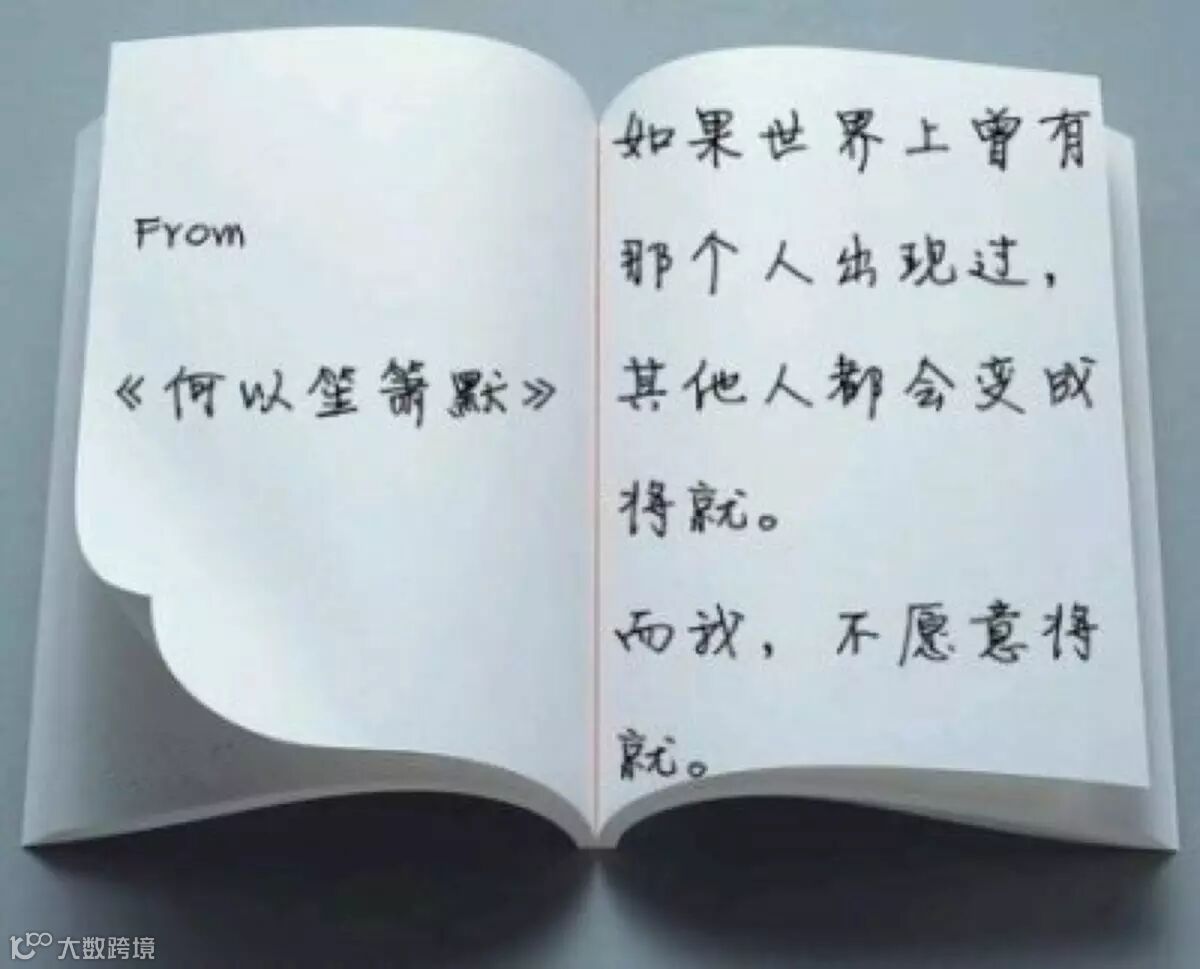 From
《何以笙箫默》
如果世界上曾有
那个人出现过，
其他人都会变成
将就。
而我，不愿意将
就。
大数跨境